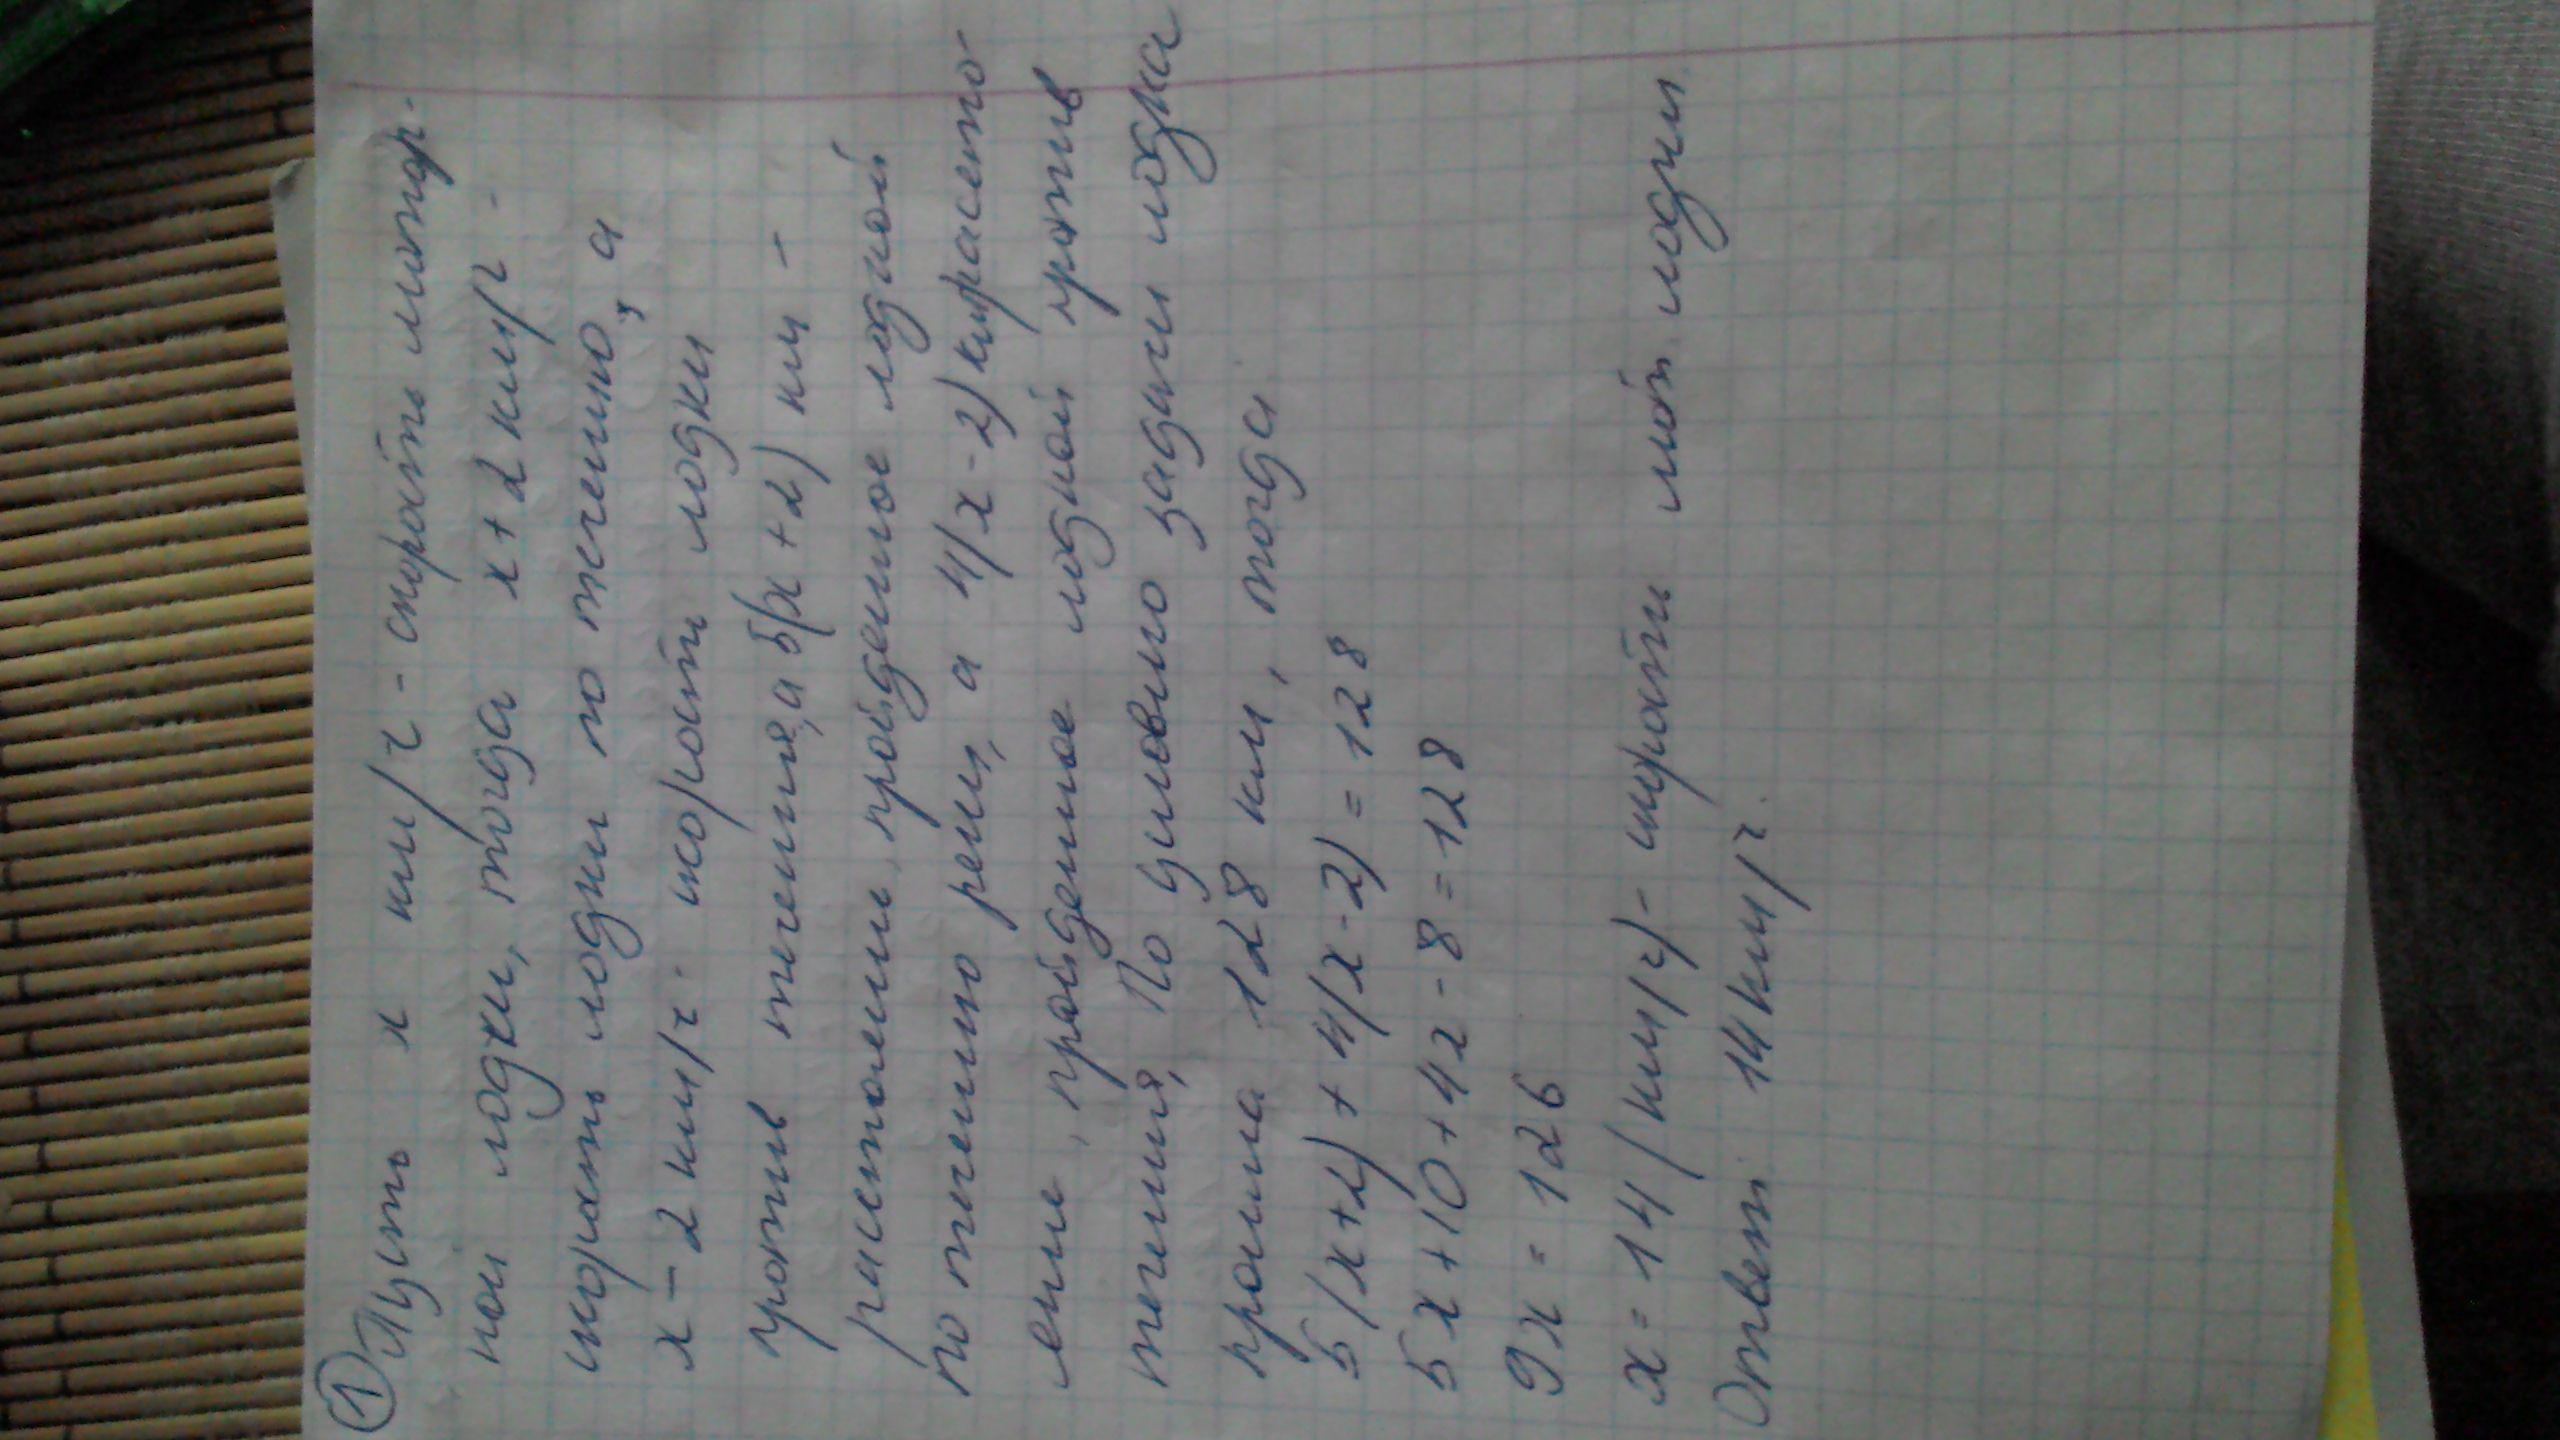 ① Пусть х км/ч - скорость мотор-
ной лодки, тогда х+2 км/ч -
скорость лодки по течению, а
х-2 км/ч - скорость лодки
против течения, а 5(х+2) км -
расстояни, пройденное лодкой
по течению реки, а 4(х-2) км расто-
ение, пройденное лодкой против
течения. По условию задачи лодка
прошла 128 км, тогда
5(х+2) + 4(х-2) = 128
5х+10+4х-8=128
9х = 126
х = 14 (км/ч) - скорость мот. лодки
Ответ: 14 км/ч.